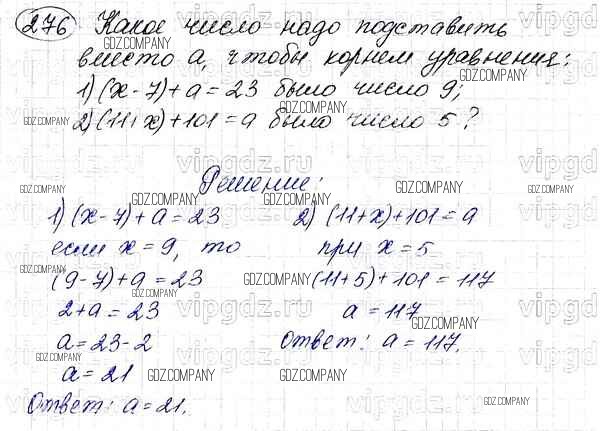 276 Какое число надо подставить
вместо а, чтобы корнем уравнения:
1) (х-7)+а=23 было число 9;
2) (11+х)+101=а было число 5?
Решение:
1) (х-7)+а=23
если х=9, то
(9-7)+а=23
2+а=23
а=23-2
а=21
Ответ: а=21.
2) (11+х)+101=а
при х=5
(11+5)+101=117
а=117
Ответ: а=117.